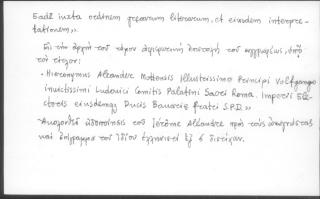 Eadē iuxta ordinem graecarum literarum, et eiusdem interpre-
tationem,,
Εἰς τὴν ἀρχὴν τοῦ τόμου ἀφιερωτικὴ ἐπιστολὴ τοῦ συγγραφέως, ὑπὸ
τὸν τίτλον:
«Hieronymus Aleander Mottensis Illustrissimo Principi Volfgango
invictissimi Ludovici Comitis Palatini Sacri Roma. Imperii Ele-
ctoris eiusdemqz Ducis Bavarie fratri S.P.D.»
Ἀκολουθεῖ εἰδοποίησις τοῦ Jérôme Aléandre πρὸς τοὺς σπουδαστὰς
καὶ ἐπίγραμμα τοῦ ἰδίου ἑλληνιστὶ ἐξ 6 διστίχων.